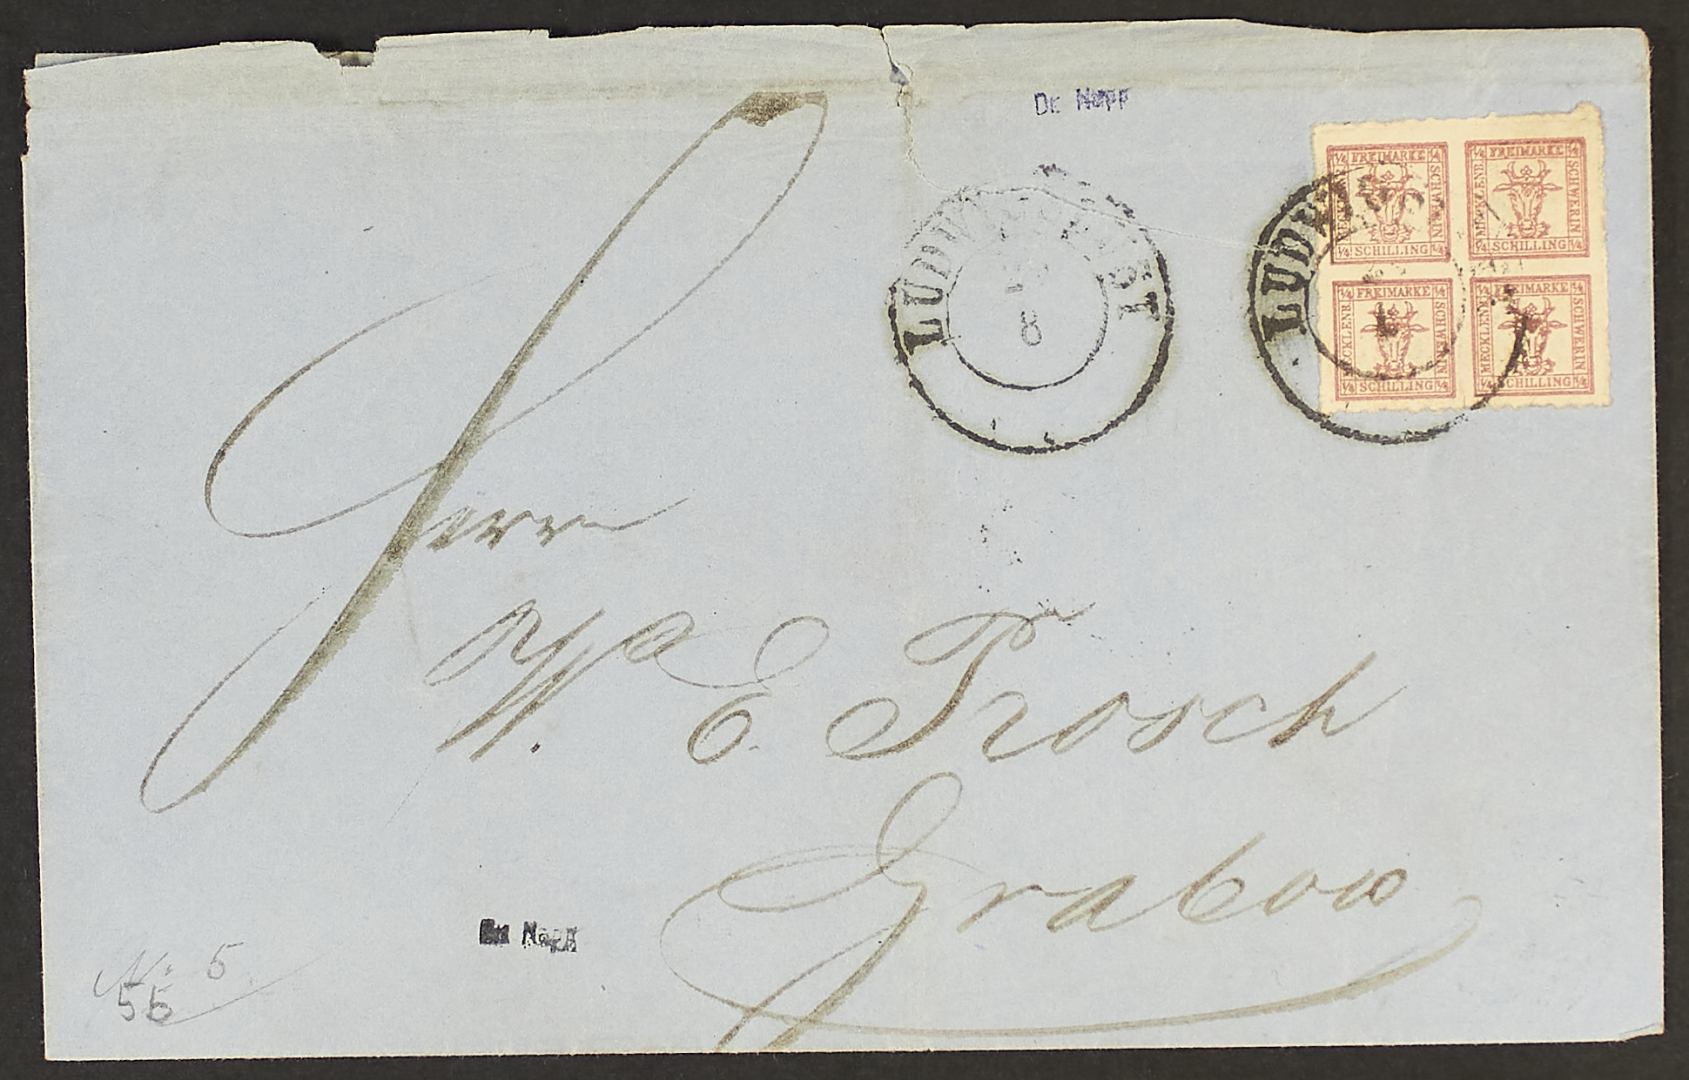 De Nopp
LUDWIGSLUST
29
8
1/4 FREIMARKE 1/4
MECKLENB. SCHWERIN
1/4 SCHILLING 1/4
1/4 FREIMARKE 1/4
MECKLENB. SCHWERIN
1/4 SCHILLING 1/4
1/4 FREIMARKE 1/4
MECKLENB. SCHWERIN
1/4 SCHILLING 1/4
1/4 FREIMARKE 1/4
MECKLENB. SCHWERIN
1/4 SCHILLING 1/4
LUDWIGS
Herrn
W. E. Trosch
Grabow
De Nopp
5
5b